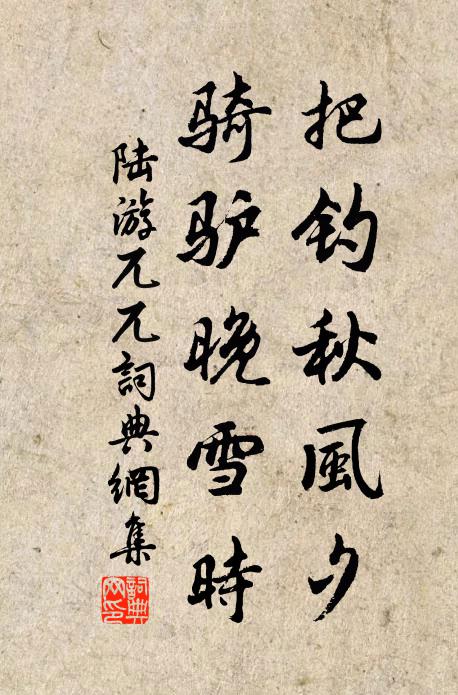 把钓秋風夕
骑驴晚雪時
陆游兀兀詞典網集
詞典網印